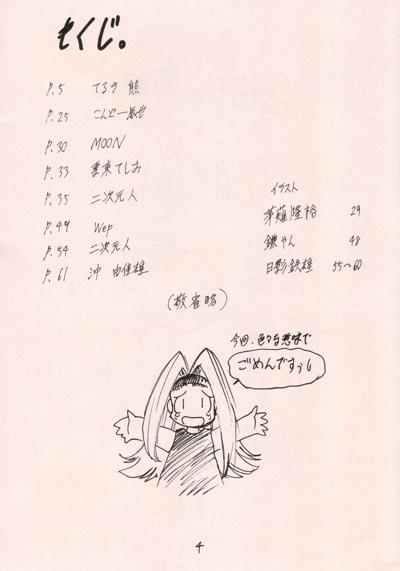 もくじ。
P.5 てるき熊
P.25 こんどー
P.30 MOON
P.33 栗東てしお
P.35 二次元人
P.49 Wep
P.54 二次元人
P.61 沖 由佳雄
イラスト
茅薙隆裕 29
鎌やん 48
日影鉄雄 55〜60
(敬省略)
今回、色々な意味で
ごめんですぅ
4